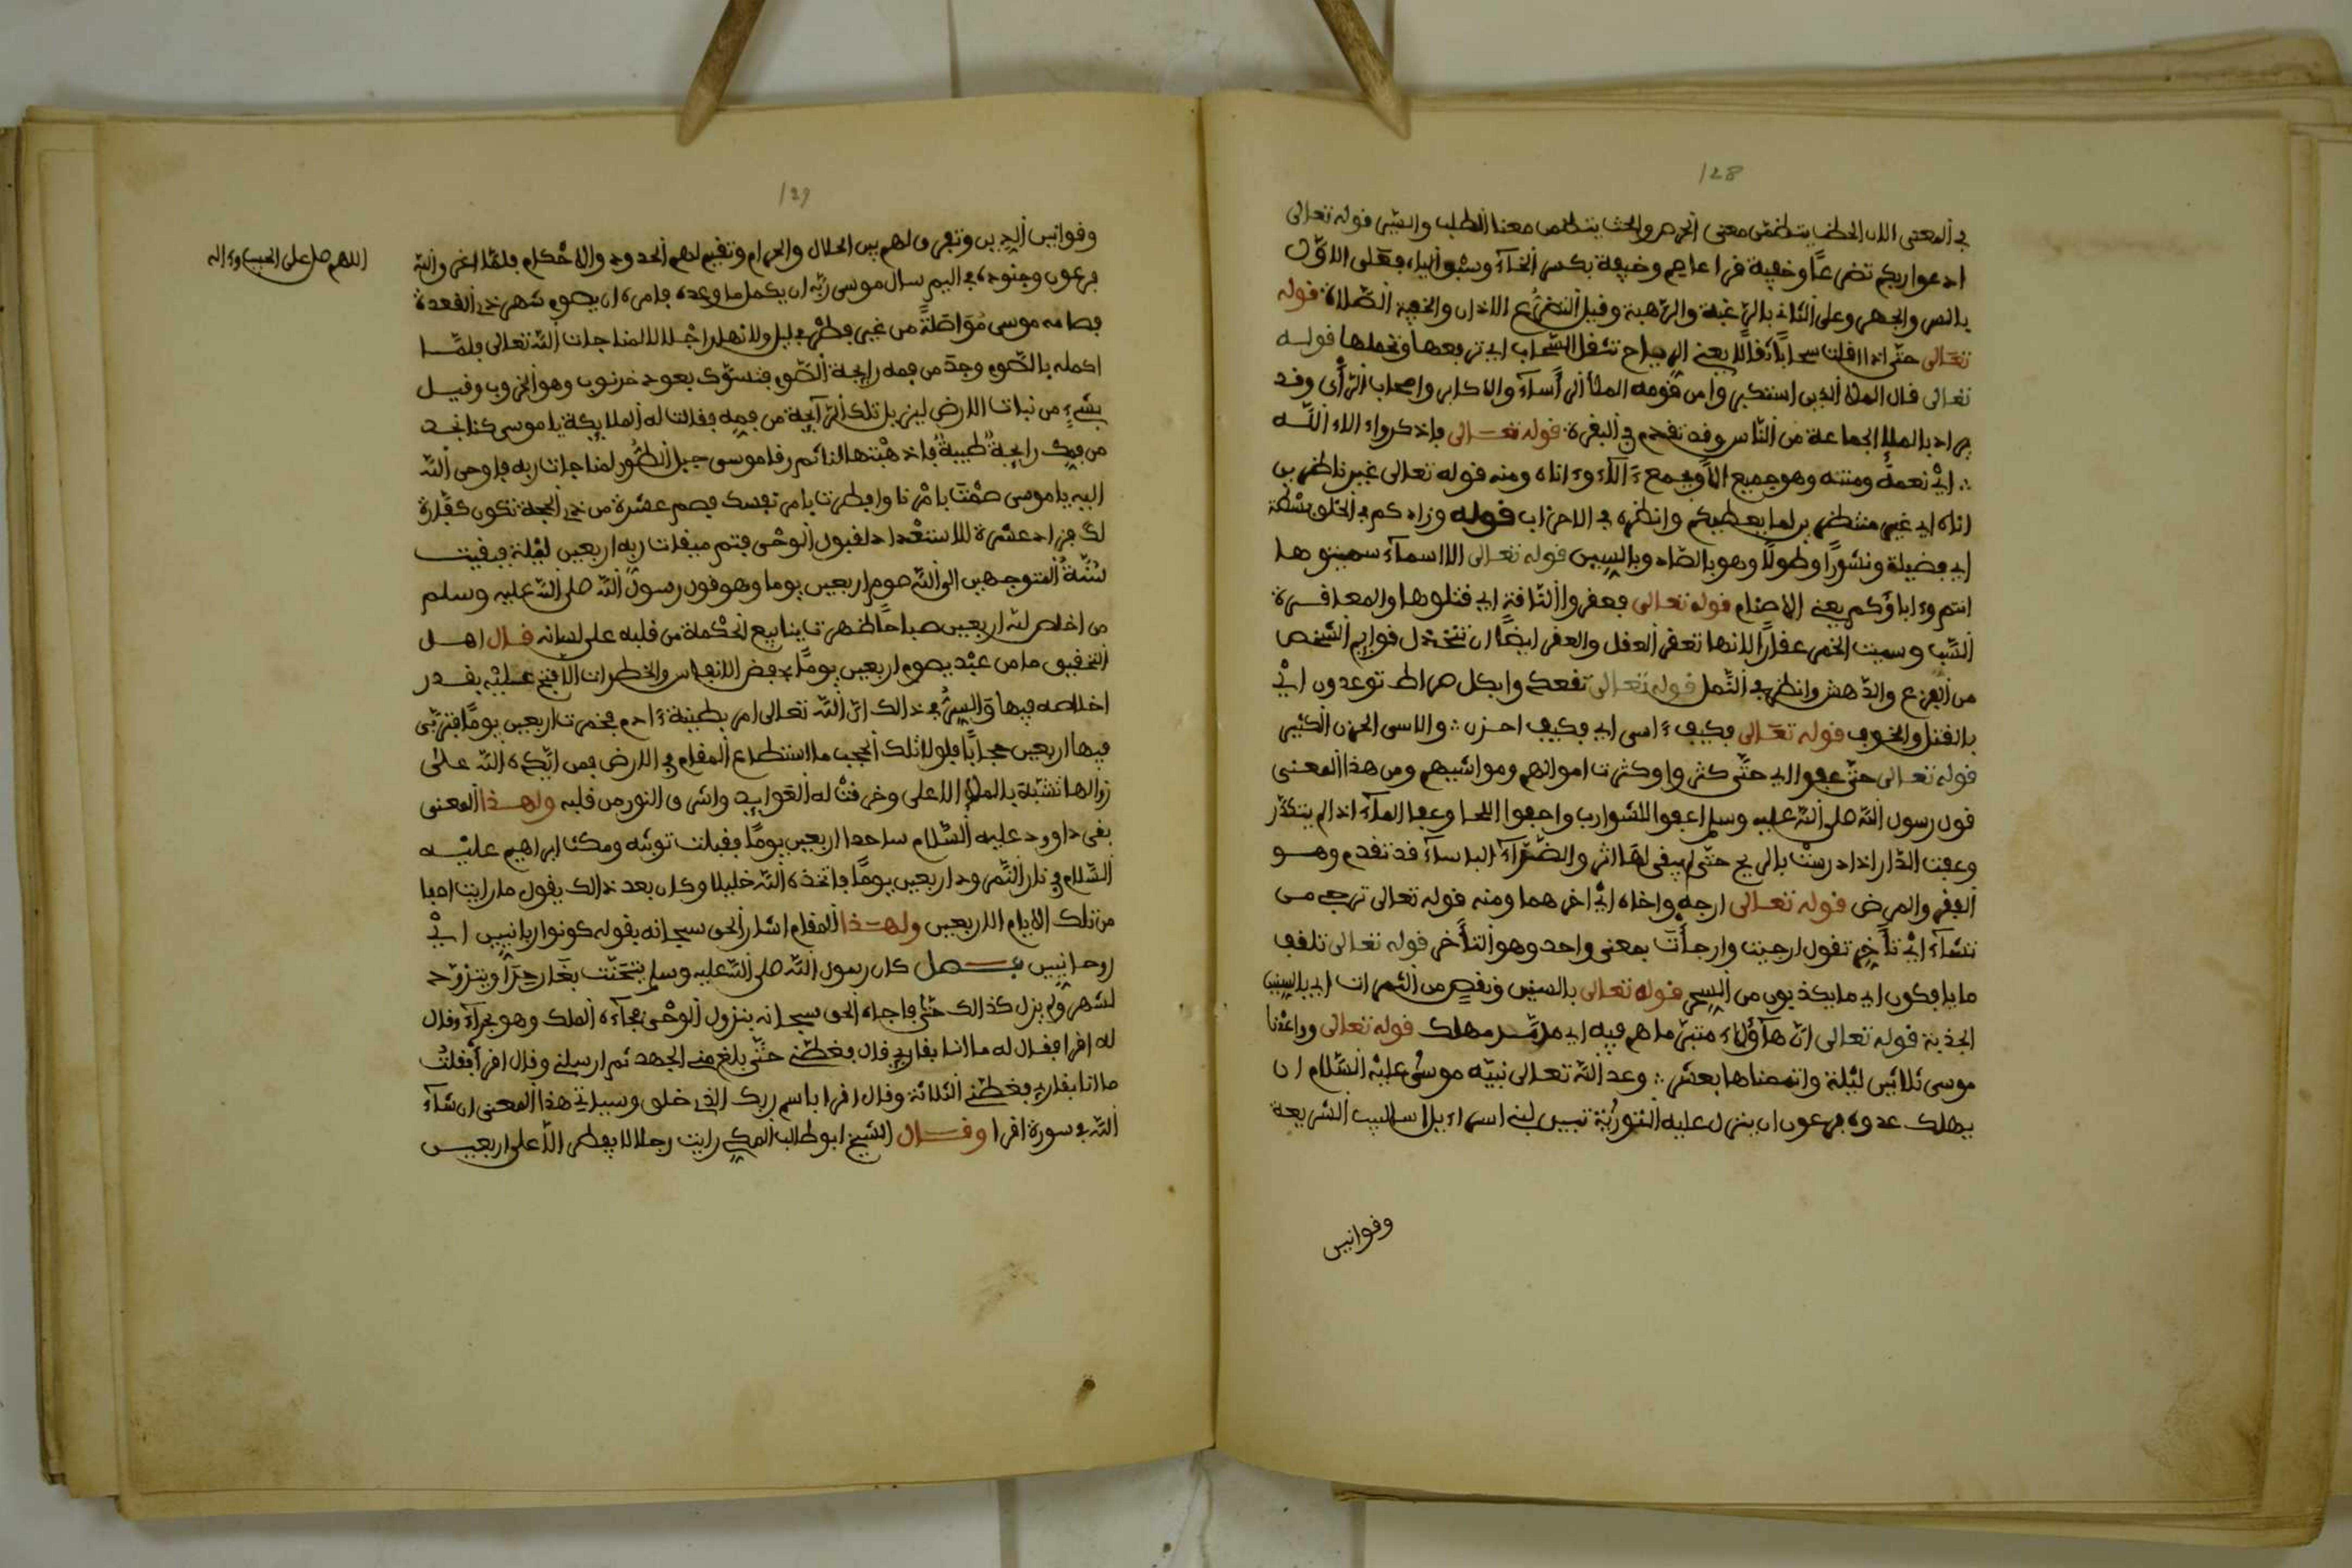 128
في المعنى الان الحظ يتضمن معنى الحرص والحث يتضمن معنا الطلب والشى قوله تعالى
ادعوا ربكم تضرعًا وخفية قرا عاصم وخيفة بكسر الخآء وسبق اليآء فعلى الاوّل
بالسر والجهر وعلى الثانى بالرّغبة والرّهبة وقيل التضرُّع الاذان والخفية الصّلاة قوله
تعالى حتّى اذا اقلت سحابًا ثقالًا يعنى الرياح تثقل السّحاب اى ترفعها وتحملها قوله
تعالى قال الملا الذين استكبروا من قومه الملأ الرأساء والاكابر واصحاب الرّأى وقد
يراد بالملإ الجماعة من النّاس وقد تقدم فى البقرة قوله تعالى فاذكروا ءالاء اللّه
اىْ نعمه ومننه وهو جميع الآ ويجمع ءَالآء وءاناه ومنه قوله تعالى غير ناظرين
اناه اى غير منتظرين لما يعطيكم وانظره فى الاحزاب قوله وزادكم فى الخلق بسْطة
اى فضيلة ونشورًا وطولًا وهو بالصّاد وبالسين قوله تعالى الا اسمآء سميتموها
انتم وءاباؤكم يعنى الاصنام قوله تعالى فعقروا النّاقة اى قتلوها والمعاقرة
السّبّ وسميت الخمر عقارًا لانها تعقر العقل والعقر ايضًا ان تتخذل قوايم الشخص
من الفزع والدّهش وانظره فى النّمل قوله تعالى تقعدوا بكل صراط توعدون اىْ
بالقتل والخوف قوله تعالى فكيف ءَاسى اى فكيف احزن والاسى الحزن الكثير
قوله تعالى حتّى عفوا اى حتّى كثروا وكثرت اموالهم ومواشيهم ومن هذا المعنى
قول رسول اللّه صلى اللّه عليه وسلم اعفوا الشوارب واحفوا اللحا وعفا المآء اذا لم يتكدّر
وعفت الدّار اذا درستْ بالريح حتّى لم يبقى لها اثر والضّرّآء الباسآء قد تقدم وهو
الفقر والمرض قوله تعالى ارجه واخاه اىْ اخرهما ومنه قوله تعالى ترجى من
تشآء اىْ تأخر تقول ارجيت وارجأت بمعنى واحد وهو التأخر قوله تعالى تلقف
ما يافكون اى ما يكذبون من السحر قوله تعالى بالسنين ونقص من الثمرات اى بالسنين
الجذبة قوله تعالى ان هآؤلاء متبّر ما هم فيه اى مدمر مهلك قوله تعالى وواعدْنا
موسى ثلاثين ليْلة واتممناها بعشر وعد اللّه تعالى نبيّه موسى عليْه السّلام ان
يهلك عدوه فرعون ان ينزل عليه التوريٰة تبين لبنى اسراءيل اساليب الشريعة
وقوانين
129
اللهم صل على الحبيب وءاله
وقوانين الدين وتفرق لهم بين الحلال والحرام وتقيم لهم الحدود والاحْكام فلمّا اغرق اللّه
فرعون وجنوده فى اليم سال موسى ربّه ان يكمل ما وعده فامره ان يصوم شهر ذى القعدة
فصامه موسى مُوَاصَلَةً من غير فطْر بليل ولا نهار اجْلالا لمناجات اللّه تعالى فلمّا
اكمله بالصّوم وجدَ من فمه رايحة الصّوم فتسوّك بعود خرنوب وهو الخروب وقيل
بشىءٍ من نبات الارض ليزيل تلك الرّآيحة من فمه فقالت له الملايكة يا موسى كنا نجد
من فمك رايحةً طيبةً فاذهبْتها لنا ثم رقا موسى جبل الطُّور لمناجات ربه فاوحى اللّه
اليه يا موسى صمْت بامْرنا وافطرت بامر نفسك فصم عشرة من ذى الحجة تكون كفّارة
لك فزاد عشرة للاستعْداد لقبول الوحْى فتم ميقات ربه اربعين ليْلة فبقيت
سُنّةُ المتوجهين الى اللّه صوم اربعين يوما وهو قول رسول اللّه صلى اللّه عليه وسلم
من اخلص للّه اربعين صباحًا ظهرت ينابيع الحكْمة من قلبه على لسانه قال اهل
التحقيق ما من عبْد يصوم اربعين يومًا يحفض الانفاس والخطرات الا فتح عليْه بقدر
اخلاصه فيها والسرُّ فى ذالك انّ اللّه تعالى امر بطينة ءَادم فخمرت اربعين يومًا فتربّى
فيها اربعين حجابًا فلولا تلك الحجب ما استطاع المقام فى الارض فمن ايّده اللّه على
زوالها تشبّه بالملإ الاعلى وخرقتْ له العَوايد واشرق النور من قلبه ولهذا المعنى
بقى داوود عليه السّلام ساجدا اربعين يومًا فقبلت توبته ومكث ابراهيم عليْه
السّلام فى نار النّمرود اربعين يومًا فاتخذه اللّه خليلا وكان بعد ذالك يقول ما رايت اصفا
من تلك الايام الاربعين ولهذا المقام اشار الحق سبحانه بقوله كونوا ربانيين اىْ
روحانيين فصل كان رسول اللّه صلى اللّه عليه وسلم يتحَنّث بغَار حِرَا ويتزوّد
لشهر ولم يزل كذالك حتّى فاجاه الحق سبحانه بنزول الوحْى فجآءه الملك وهو بحرآء وقال
له اقرا فقال له ما انا بقارى قال فغطّنى حتّى بلغ منى الجهد ثم ارسلنى وقال اقرأ فقلتُ
ما انا بقارى فغطّنى الثالثة وقال اقرا باسم ربك الذى خلق وسياتى هذا المعنى ان شآء
اللّه فى سورة اقرا وقال الشيخ ابو طالب المكى رايت رجلا لا يفطر الّا على اربعين